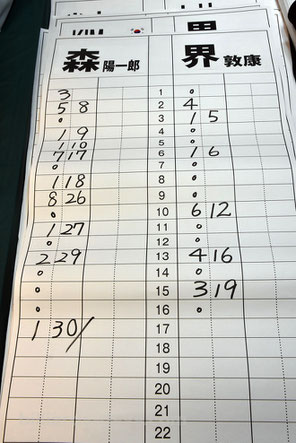 森 陽一郎 界 敦康
3 1 o
5 8 2 4
o 3 1 5
1 9 4 o
1 10 5 o
7 17 6 1 6
o 7 o
1 18 8 o
8 26 9 o
o 10 6 12
1 27 11 o
o 12 o
2 29 13 4 16
o 14 o
o 15 3 19
o 16 o
1 30/ 17
18
19
20
21
22